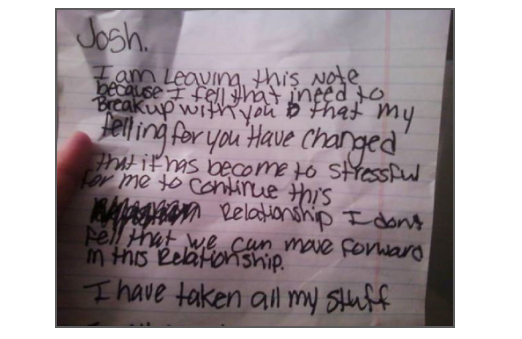 Josh.
I am Leaving this Note
because I fell that i need to
Breakup with you that my
felling for you Have changed
that it has become to stressful
for me to continue this
Relationship I dont
fell that we can move forward
in this Relationship.
I have taken all my stuff